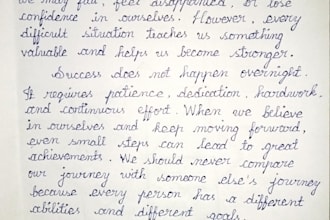 we may fail, feel disappointed, or lose
confidence in ourselves. However, every
difficult situation teaches us something
valuable and helps us become stronger.
Success does not happen overnight.
It requires patience, dedication, hardwork,
and continuous effort. When we believe
in ourselves and keep moving forward,
even small steps can lead to great
achievements. We should never compare
our journey with someone else's journey
because every person has a different
abilities and different goals.